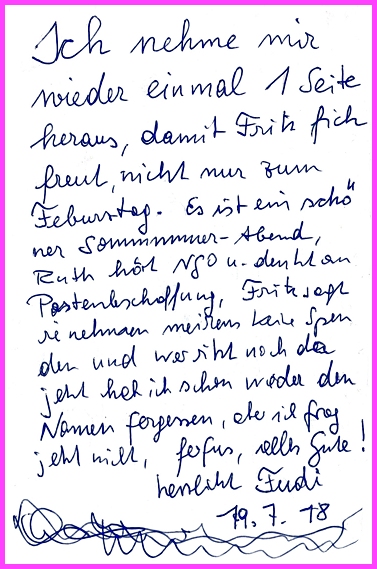 Ich nehme mir
wieder einmal 1 Seite
heraus, damit Fritz sich
freut, nicht nur zum
Feburstag. Es ist ein schö
ner Sommmmer-Abend,
Ruth hört NGO u. denkt an
Postenbeschaffung, Fritz sagt
sie nehmen meistens keine Spen
den und wer sitzt noch da
jetzt hab ich schon wieder den
Namen fergessen, aber ich frag
jetzt nicht, alles Gute!
herzlichst Fudi
19. 7. 18